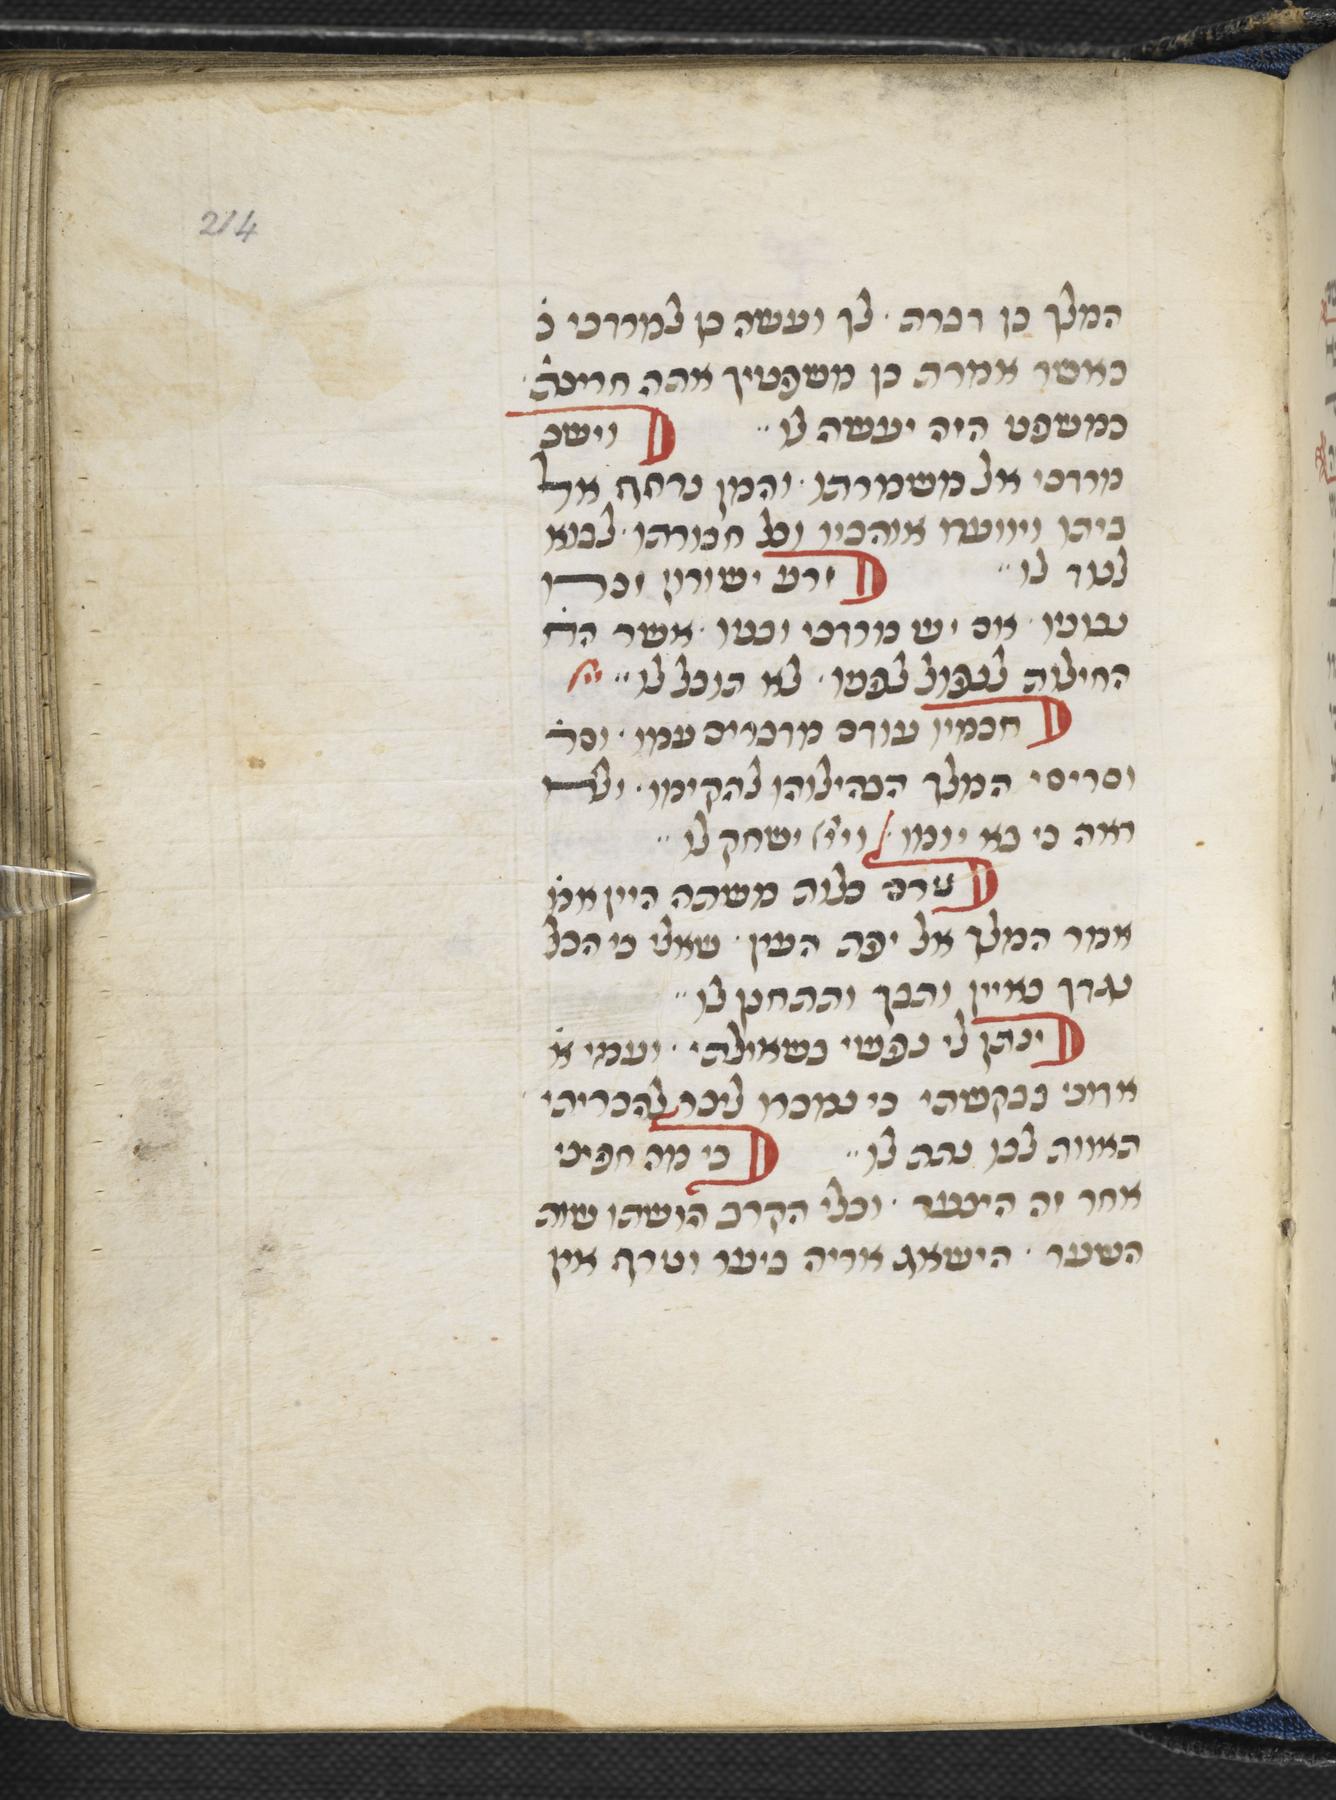 214
המלך כן דברת · לך ועשה כן למרדכי כ
כאשר אמרת כן משפטיך אתה חרצת ·
כמשפט היה יעשה לו · וישב
מרדכי אל משמרתו · והמן נדחף אל
ביתו ויוועדו אוהביו וכל חבורתו · לבוא
לנוד לו
זרע ישורון זכרו
נבוניו · אם יש מרדכי ובניו · אשר הח
החילות לנפול לפניו · לא תוכל לו
חכמיו עודם מדברים עמו · וסר
וסריסי המלך הבהילוהו להקימו ·
ראה כי בא יומו · וייי ישחק לו
טרם כלות משתה היין אמ
אמר המלך אל יפת העין · שאלי כי הכל
נגדך כאיין ותבך ותתחנן לו
ינתן לי נפשי בשאילתי · ועמי א
אדוני בבקשתי כי נמכרו ליכר להכריתי
האוות לבו נתת לו · כי מה חפיצי
אחר זה הינער · וכלי הקרב הושתו שות
השער · הישאג אריה ביער וטרף אין